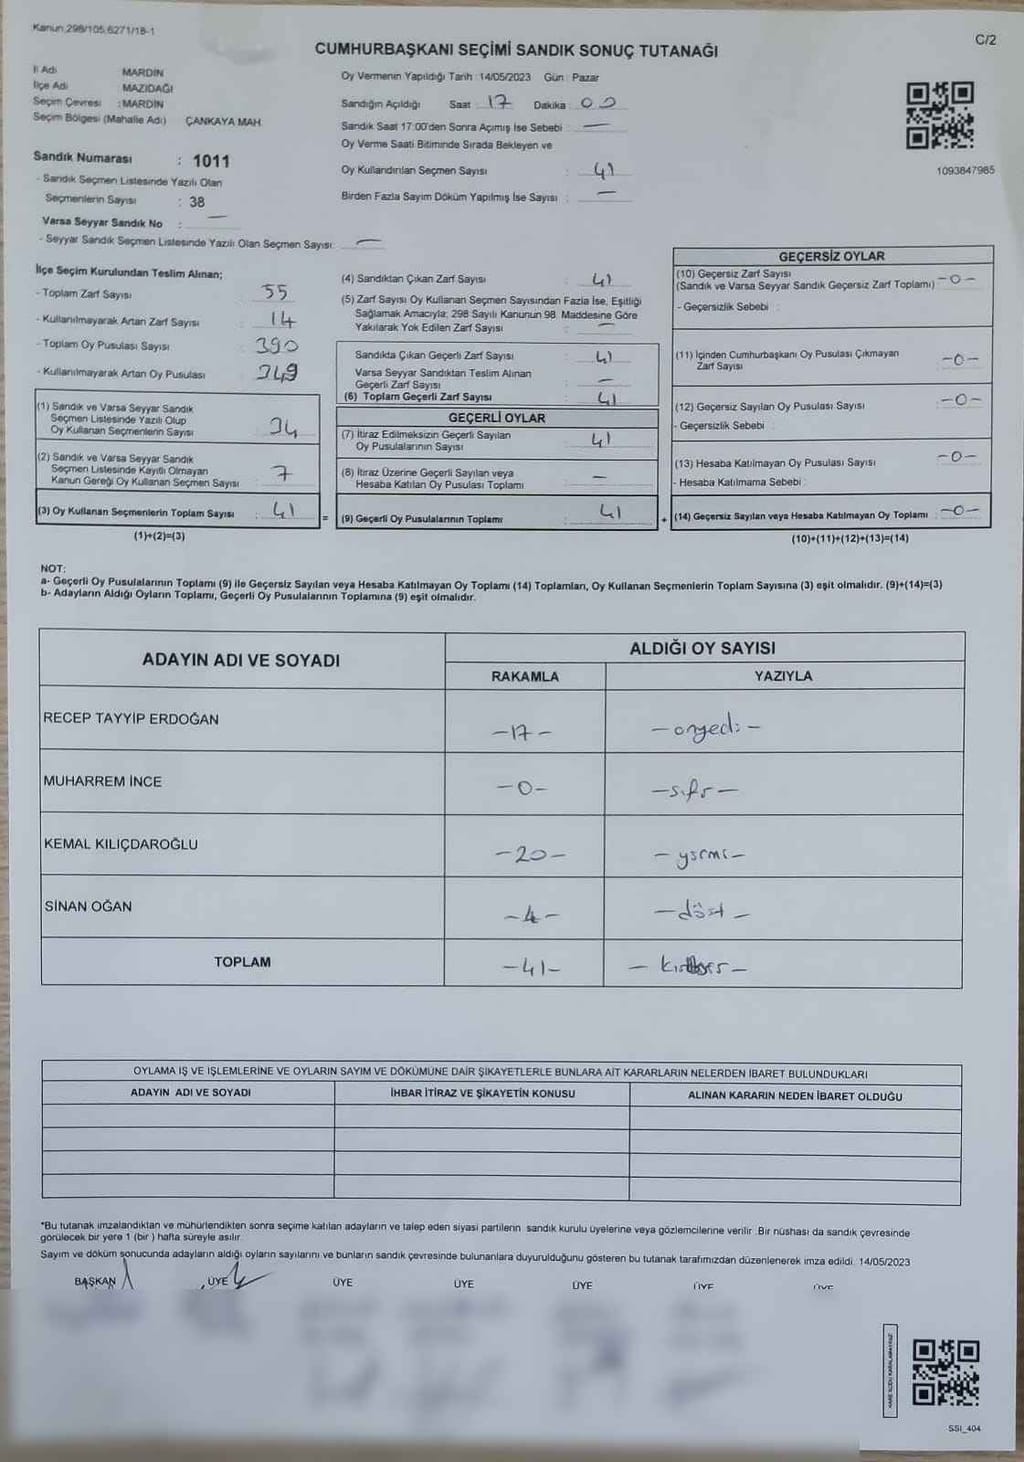 Kanun 298/105,6271/18-1
C/2
CUMHURBAŞKANI SEÇİMİ SANDIK SONUÇ TUTANAĞI
İl Adı MARDİN
İlçe Adı MAZIDAĞI
Seçim Çevresi : MARDİN
Seçim Bölgesi (Mahalle Adı) ÇANKAYA MAH.
Sandık Numarası : 1011
- Sandık Seçmen Listesinde Yazılı Olan
Seçmenlerin Sayısı : 38
Varsa Seyyar Sandık No : —
- Seyyar Sandık Seçmen Listesinde Yazılı Olan Seçmen Sayısı: —
Oy Vermenin Yapıldığı Tarih : 14/05/2023 Gün : Pazar
Sandığın Açıldığı Saat : 17 Dakika : 00
Sandık Saat 17:00'den Sonra Açımış İse Sebebi : —
Oy Verme Saati Bitiminde Sırada Bekleyen ve
Oy Kullandırılan Seçmen Sayısı : 41
Birden Fazla Sayım Döküm Yapılmış İse Sayısı : —
1093847985
İlçe Seçim Kurulundan Teslim Alınan;
- Toplam Zarf Sayısı : 55
- Kullanılmayarak Artan Zarf Sayısı : 14
- Toplam Oy Pusulası Sayısı : 390
- Kullanılmayarak Artan Oy Pusulası : 349
(1) Sandık ve Varsa Seyyar Sandık
Seçmen Listesinde Yazılı Olup
Oy Kullanan Seçmenlerin Sayısı : 34
(2) Sandık ve Varsa Seyyar Sandık
Seçmen Listesinde Kayıtlı Olmayan
Kanun Gereği Oy Kullanan Seçmen Sayısı : 7
(3) Oy Kullanan Seçmenlerin Toplam Sayısı : 41
(1)+(2)=(3)
(4) Sandıktan Çıkan Zarf Sayısı : 41
(5) Zarf Sayısı Oy Kullanan Seçmen Sayısından Fazla İse, Eşitliği
Sağlamak Amacıyla; 298 Sayılı Kanunun 98. Maddesine Göre
Yakılarak Yok Edilen Zarf Sayısı : —
Sandıkta Çıkan Geçerli Zarf Sayısı : 41
Varsa Seyyar Sandıktan Teslim Alınan
Geçerli Zarf Sayısı : —
(6) Toplam Geçerli Zarf Sayısı : 41
GEÇERLİ OYLAR
(7) İtiraz Edilmeksizin Geçerli Sayılan
Oy Pusulalarının Sayısı : 41
(8) İtiraz Üzerine Geçerli Sayılan veya
Hesaba Katılan Oy Pusulası Toplamı : —
= (9) Geçerli Oy Pusulalarının Toplamı : 41
GEÇERSİZ OYLAR
(10) Geçersiz Zarf Sayısı
(Sandık ve Varsa Seyyar Sandık Geçersiz Zarf Toplamı) -0-
- Geçersizlik Sebebi :
(11) İçinden Cumhurbaşkanı Oy Pusulası Çıkmayan
Zarf Sayısı -0-
(12) Geçersiz Sayılan Oy Pusulası Sayısı -0-
- Geçersizlik Sebebi :
(13) Hesaba Katılmayan Oy Pusulası Sayısı -0-
- Hesaba Katılmama Sebebi :
+ (14) Geçersiz Sayılan veya Hesaba Katılmayan Oy Toplamı : -0-
(10)+(11)+(12)+(13)=(14)
NOT:
a- Geçerli Oy Pusulalarının Toplamı (9) ile Geçersiz Sayılan veya Hesaba Katılmayan Oy Toplamı (14) Toplamları, Oy Kullanan Seçmenlerin Toplam Sayısına (3) eşit olmalıdır. (9)+(14)=(3)
b- Adayların Aldığı Oyların Toplamı, Geçerli Oy Pusulalarının Toplamına (9) eşit olmalıdır.
ADAYIN ADI VE SOYADI ALDIĞI OY SAYISI
RAKAMLA YAZIYLA
RECEP TAYYİP ERDOĞAN -17- -onyedi-
MUHARREM İNCE -0- -sıfır-
KEMAL KILIÇDAROĞLU -20- -yirmi-
SİNAN OĞAN -4- -dört-
TOPLAM -41-
OYLAMA İŞ VE İŞLEMLERİNE VE OYLARIN SAYIM VE DÖKÜMÜNE DAİR ŞİKAYETLERLE BUNLARA AİT KARARLARIN NELERDEN İBARET BULUNDUKLARI
ADAYIN ADI VE SOYADI İHBAR İTİRAZ VE ŞİKAYETİN KONUSU ALINAN KARARIN NEDEN İBARET OLDUĞU
*Bu tutanak imzalandıktan ve mühürlendikten sonra seçime katılan adayların ve talep eden siyasi partilerin sandık kurulu üyelerine veya gözlemcilerine verilir. Bir nüshası da sandık çevresinde
görülecek bir yere 1 (bir) hafta süreyle asılır.
Sayım ve döküm sonucunda adayların aldığı oyların sayılarını ve bunların sandık çevresinde bulunanlara duyurulduğunu gösteren bu tutanak tarafımızdan düzenlenerek imza edildi. 14/05/2023
BAŞKAN ÜYE ÜYE ÜYE ÜYE ÜYE ÜYE
SSI_404